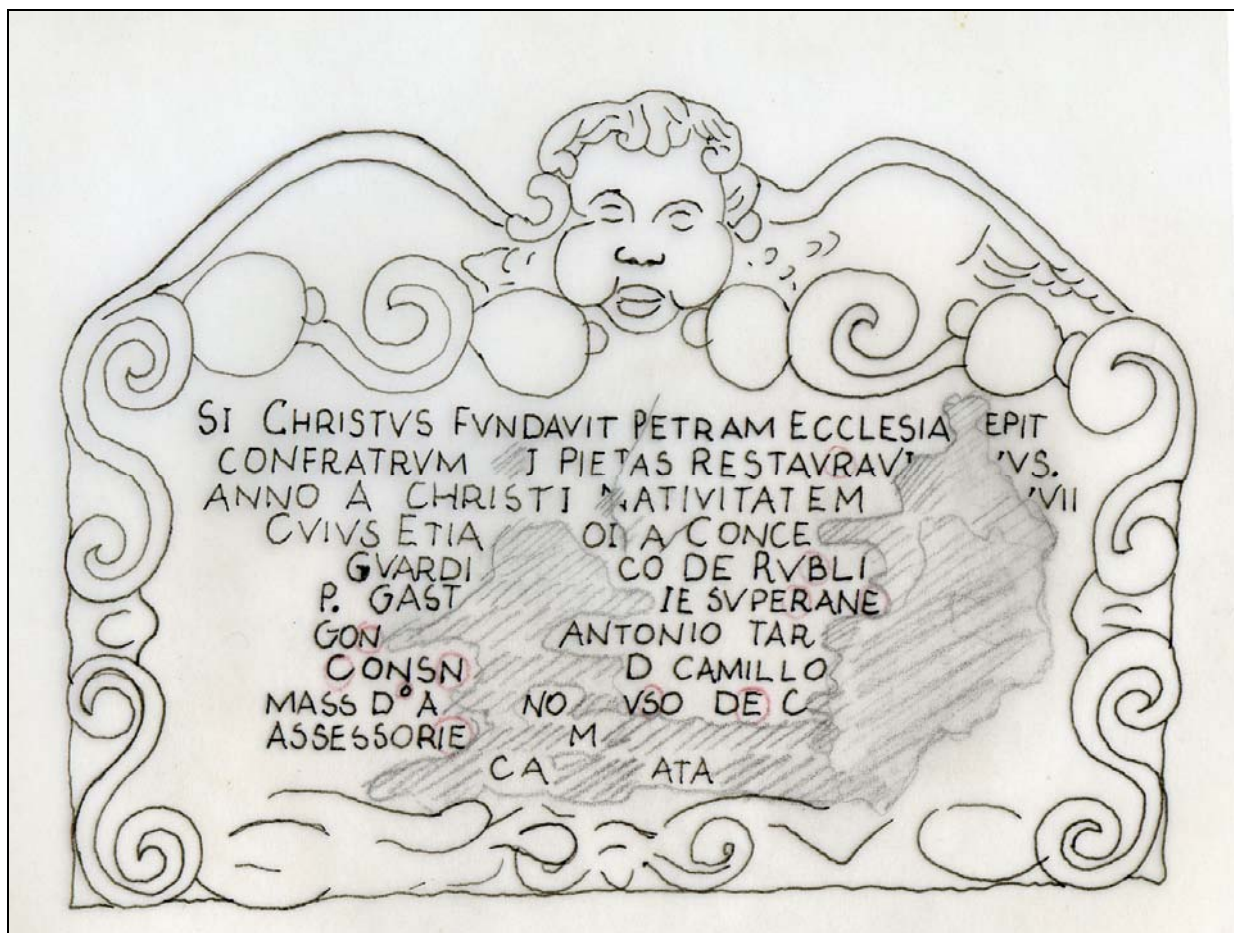 SI CHRISTVS FVNDAVIT PETRAM ECCLESIA EPIT
CONFRATRVM I PIETAS RESTAVRAVI VS.
ANNO A CHRISTI NATIVITATEM VII
CVIVS ETIA OI A CONCE
GVARDI CO DE RVBLI
P. GAST IE SVPERANE
GON ANTONIO TAR
CONSN D CAMILLO
MASS D° A NO VSO DE C
ASSESSORIE M
CA ATA